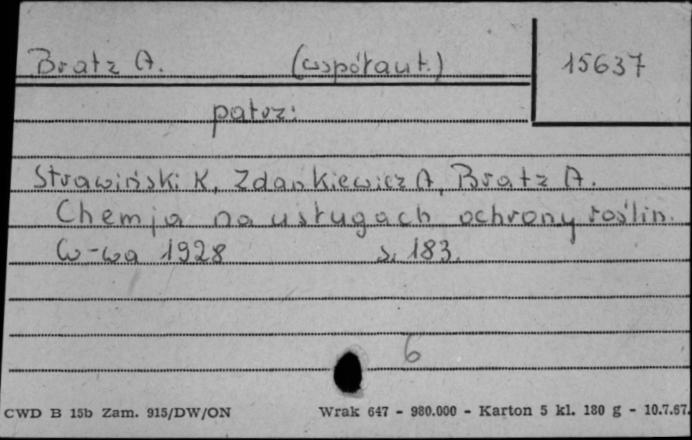 Bratz A. (współaut.) 15637
patrz:
Strawiński K, Zdankiewicz A, Bratz A.
Chemja na usługach ochrony roślin.
W-wa 1928 s. 183.
6
CWD B 15b Zam. 915/DW/ON Wrak 647 - 980.000 - Karton 5 kl. 180 g - 10.7.67.